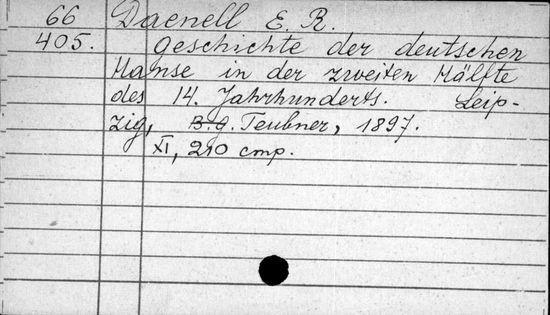 66 Daenell E. R.
405. Geschichte der deutschen
Hanse in der zweiten Hälfte
des 14. Jahrhunderts. Leip-
zig, B. G. Teubner, 1897.
XI, 210 cmp.